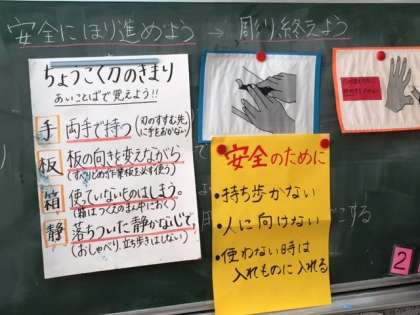 安全にほり進めよう → 彫り終えよう
ちょうこく刀のきまり
あいことばで覚えよう!!
手 両手で持つ (刃のすすむ先に手をおかない)
板 板の向きを変えながら
(すべりどめ作業板を必ず使う)
箱 使っていないものはしまう。
(箱はつくえのまん中におく)
静 落ちついた静かなかんじで、
(おしゃべり、立ち歩きはしない)
安全のために
・持ち歩かない
・人に向けない
・使わない時は
入れものに入れる
する
2